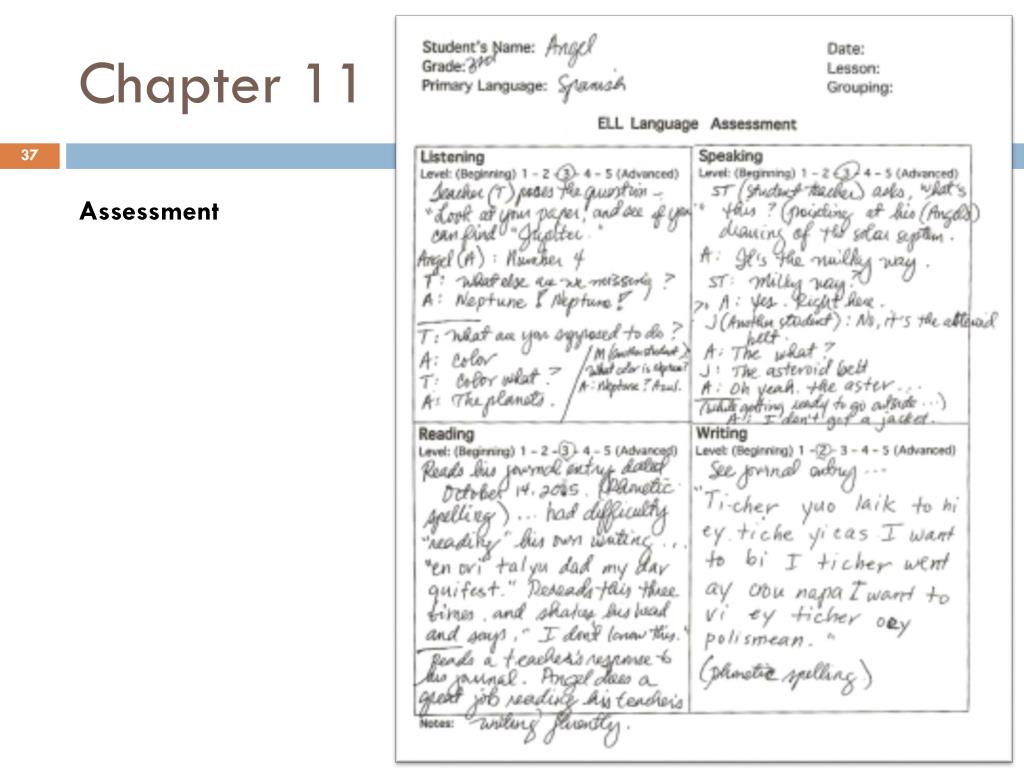 Chapter 11
37
Assessment
Student's Name: Angel
Grade: 3rd
Primary Language: Spanish
Date:
Lesson:
Grouping:
ELL Language Assessment
Listening
Level: (Beginning) 1 – 2 – 3 – 4 – 5 (Advanced)
Teacher (T) poses the question –
"Look at your paper, and see if you
can find "Jupiter."
Angel (A) : Number 4
T: What else are we missing?
A: Neptune! Neptune!
T: What are you supposed to do?
A: Color
T: Color what?
A: The planets.
M (another student)
What color is Neptune?
A: Neptune? Azul.
Speaking
Level: (Beginning) 1 – 2 – 3 – 4 – 5 (Advanced)
ST (student teacher) asks, "What's
this? (pointing at his (Angel's)
drawing of the solar system.
A: It's the milky way.
ST: Milky way?
A: Yes. Right here.
J (Another student) : No, it's the asteroid
belt.
A: The what?
J: The asteroid belt
A: Oh yeah. the aster...
(While getting ready to go outside...)
A: I don't got a jacket.
Reading
Level: (Beginning) 1 – 2 – 3 – 4 – 5 (Advanced)
Reads his journal entry dated
October 14, 2005. (Phonetic
spelling) ... had difficulty
"reading" his own writing ...
"en ori talyu dad my dar
quifest." Rereads this three
times, and shakes his head
and says, "I don't know this."
Reads a teacher's response to
his journal. Angel does a
great job reading his teacher's
writing fluently.
Writing
Level: (Beginning) 1 – 2 – 3 – 4 – 5 (Advanced)
See journal entry ...
"Ticher yuo laik to bi
ey tiche yicas I want
to bi I ticher went
ay crou napa I want to
vi ey ticher ory
polismean."
(phonetic spelling)
Notes: